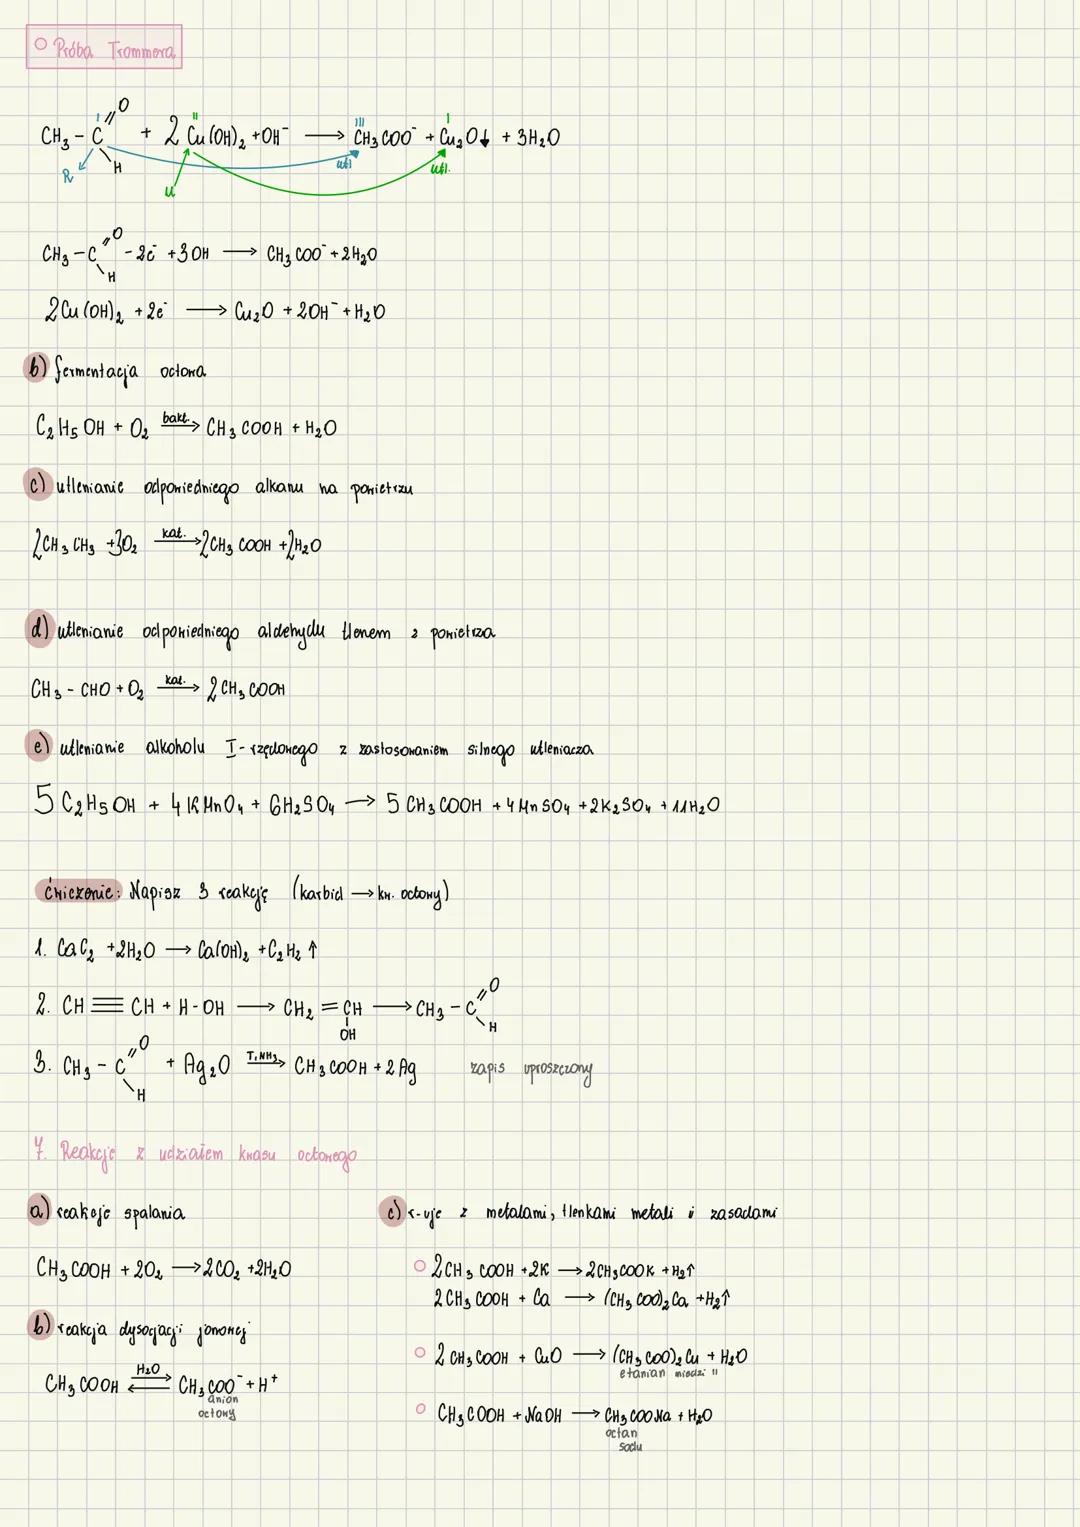 ○ Próba Trommera
CH₃ – C(=O)H + 2 Cu(OH)₂ + OH⁻ ⟶ CH₃COO⁻ + Cu₂O↓ + 3H₂O
I II III I
R u utl utl.
CH₃ – C(=O)H - 2e⁻ + 3OH ⟶ CH₃COO⁻ + 2H₂O
2Cu(OH)₂ + 2e⁻ ⟶ Cu₂O + 2OH⁻ + H₂O
b) fermentacja octowa
C₂H₅OH + O₂ bakt.⟶ CH₃COOH + H₂O
c) utlenianie odpowiedniego alkanu na powietrzu
2CH₃CH₃ + 3O₂ kat.⟶ 2CH₃COOH + 2H₂O
d) utlenianie odpowiedniego aldehydu tlenem z powietrza
CH₃ - CHO + O₂ kat.⟶ 2CH₃COOH
e) utlenianie alkoholu I-rzędowego z zastosowaniem silnego utleniacza
5 C₂H₅OH + 4KMnO₄ + 6H₂SO₄ ⟶ 5 CH₃COOH + 4MnSO₄ + 2K₂SO₄ + 11H₂O
Ćwiczenie: Napisz 3 reakcję (karbid ⟶ kw. octowy)
1. CaC₂ + 2H₂O ⟶ Ca(OH)₂ + C₂H₂ ↑
2. CH ≡ CH + H-OH ⟶ CH₂ = CH(OH) ⟶ CH₃ – C(=O)H
3. CH₃ – C(=O)H + Ag₂O T,NH₃⟶ CH₃COOH + 2Ag zapis uproszczony
7. Reakcje z udziałem kwasu octowego
a) reakcje spalania
CH₃COOH + 2O₂ ⟶ 2CO₂ + 2H₂O
b) reakcja dysocjacji jonowej
CH₃COOH ⇄ H₂O CH₃COO⁻ + H⁺
anion
octowy
c) r-cje z metalami, tlenkami metali i zasadami
○ 2CH₃COOH + 2K ⟶ 2CH₃COOK + H₂↑
2CH₃COOH + Ca ⟶ (CH₃COO)₂Ca + H₂↑
○ 2CH₃COOH + CuO ⟶ (CH₃COO)₂Cu + H₂O
etanian miedzi II
○ CH₃COOH + NaOH ⟶ CH₃COONa + H₂O
octan
sodu